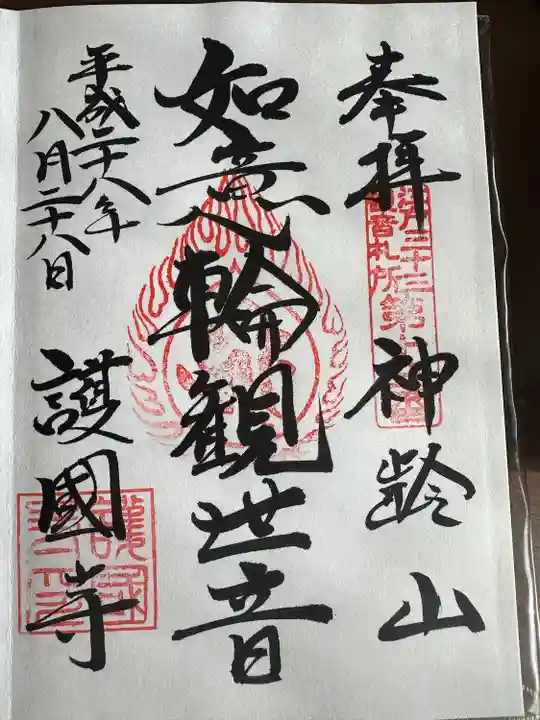 奉拝 神齢山
江戸三十三
観音札所第
如意輪観世音
平成二十八年
八月二十八日
護國寺